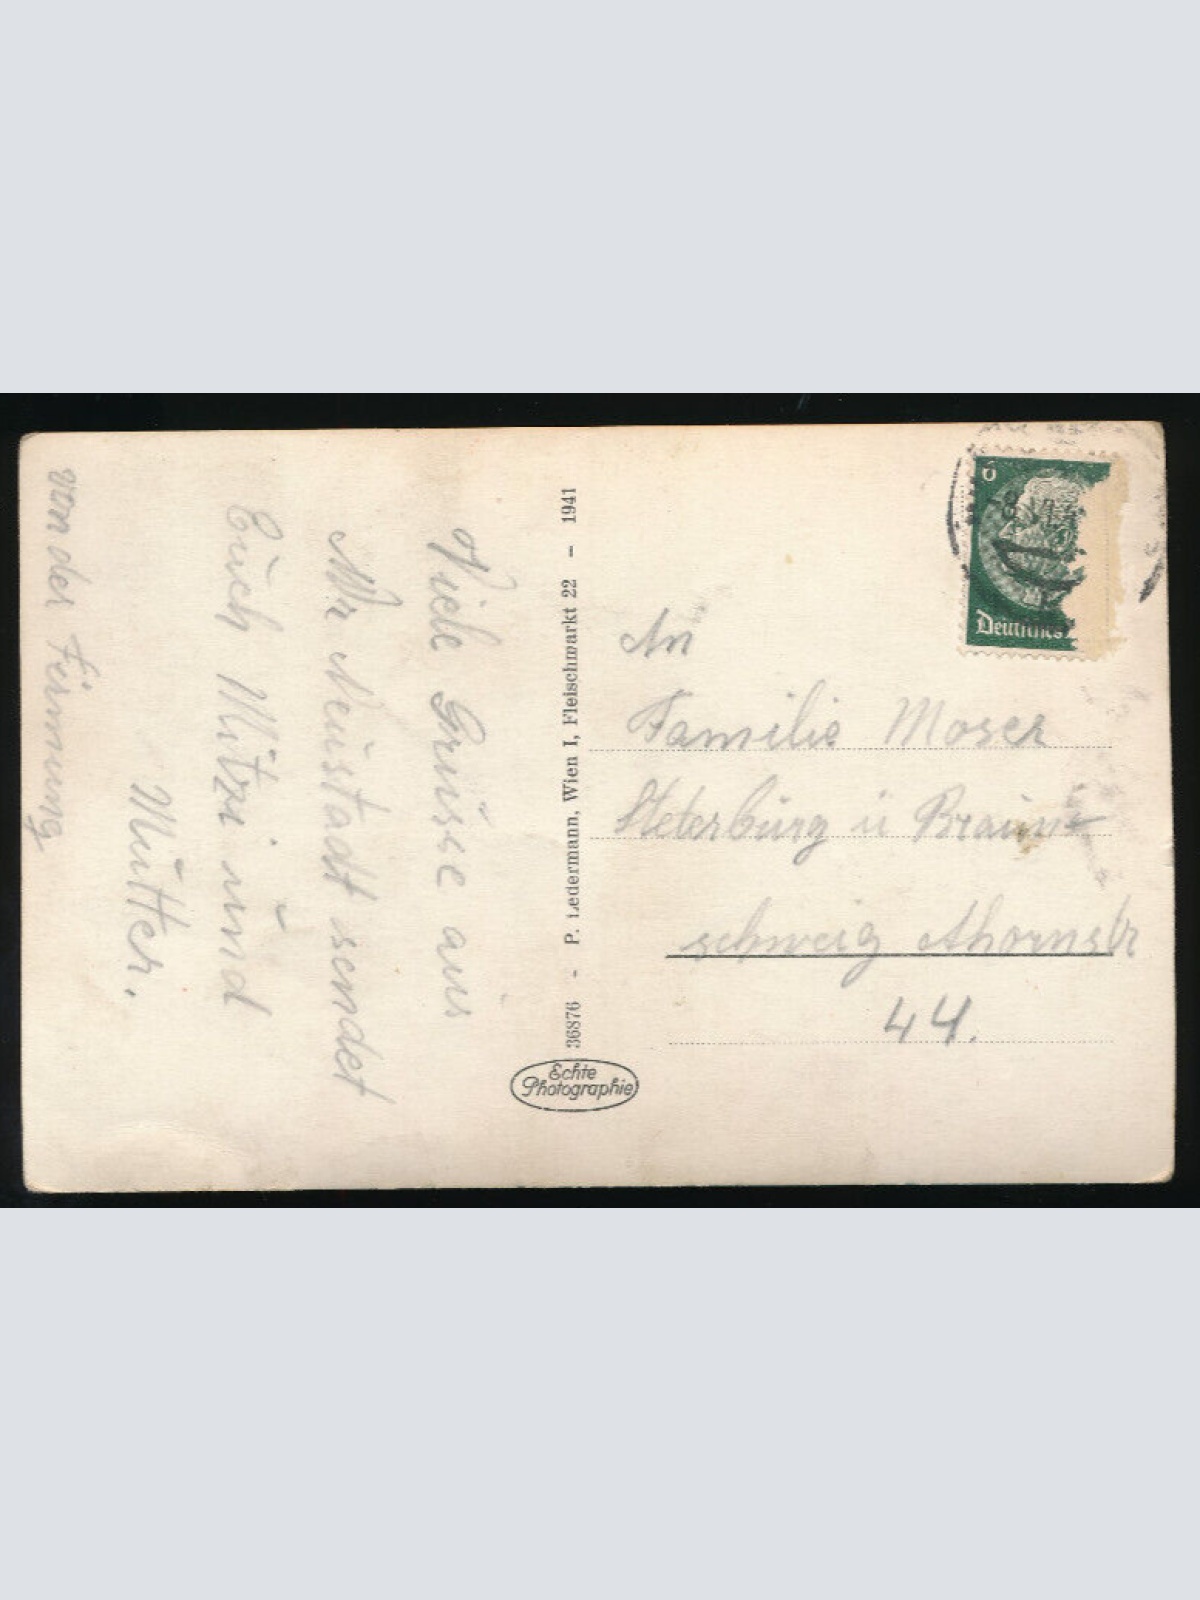 Viele Grüsse aus
Wr Neustadt sendet
Euch Mitzi und
Mutter.
von der Firmung
36876 - P. Ledermann, Wien I, Fleischmarkt 22 - 1941
Echte
Photographie
6
Deutsches
-8.
An
Familie Moser
Steterburg ü Braun-
schweig Ahornstr
44.